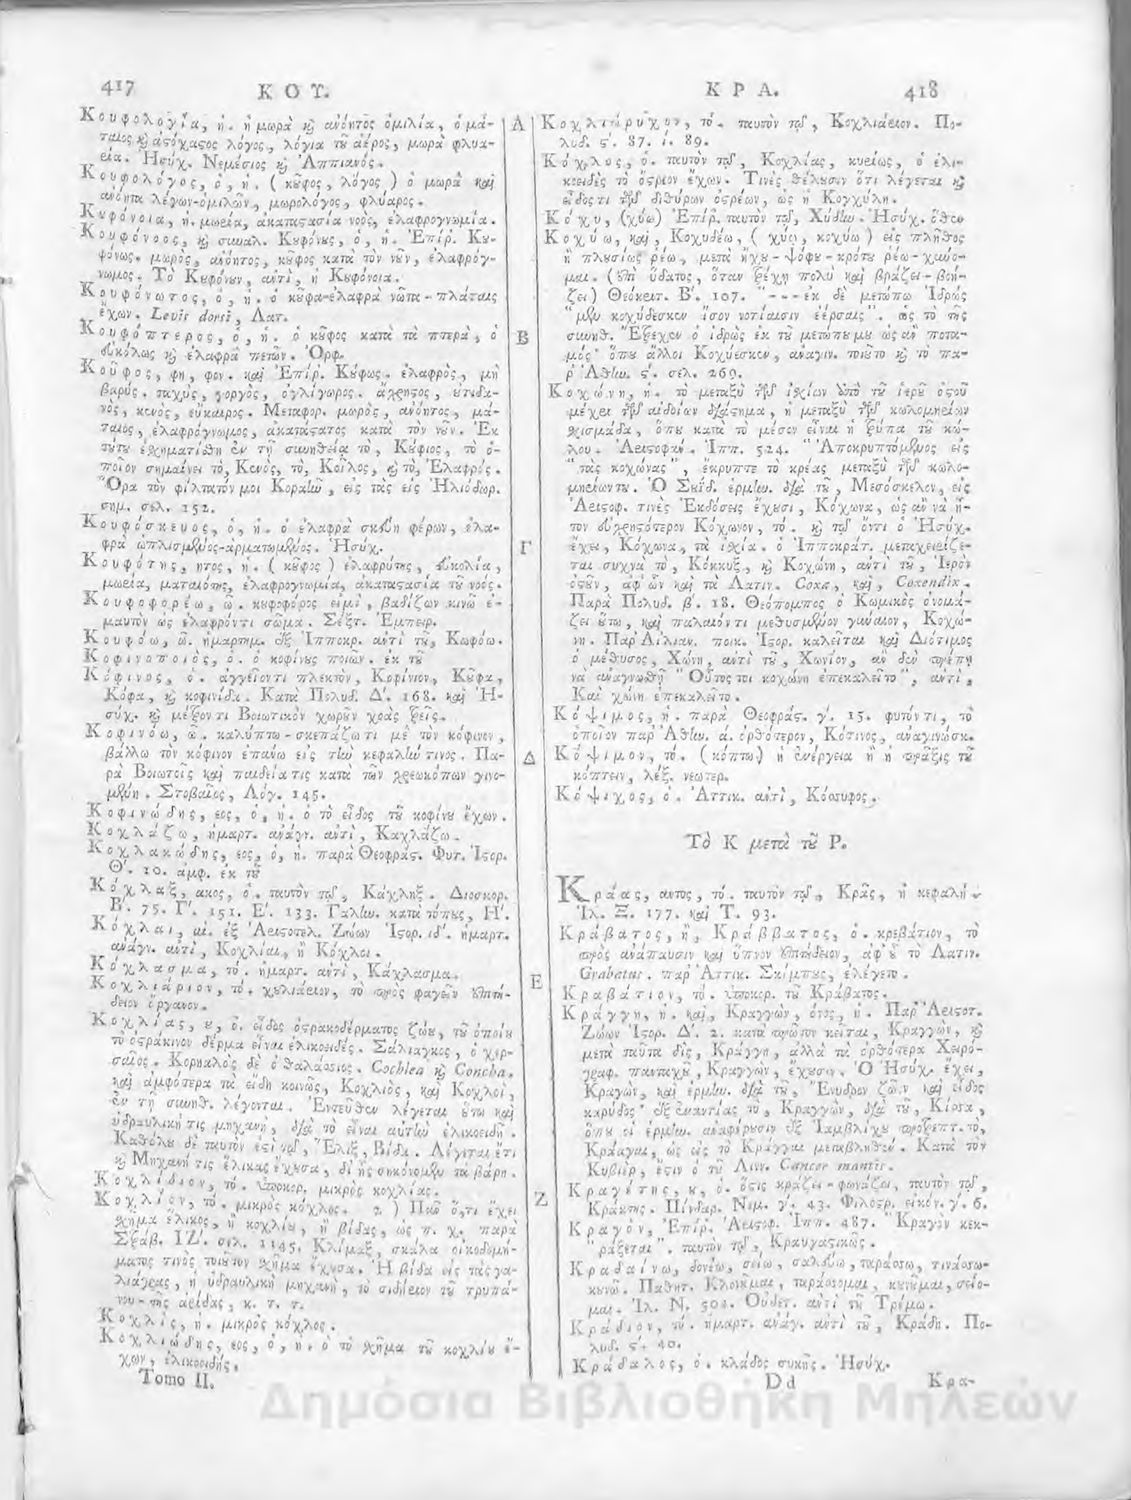 417 Κ Ο Υ.
Κουφολογία, ἡ. ἡ μωρὰ καὶ ἀνόητος ὁμιλία, ὁ μά-
ταιος καὶ ἀσόχαστος λόγος, λόγια τοῦ ἀέρος, μωρὰ φλυα-
ρία. Ἡσύχ. Νεμέσιος καὶ Ἀππιανός.
Κουφολόγος, ὁ, ἡ. ( κοῦφος, λόγος ) ὁ μωρὰ καὶ
ἀνόητα λέγων-ὁμιλῶν, μωρολόγος, φλύαρος.
Κουφόνοια, ἡ. μωρία, ἀκαταστασία νοός, ἐλαφρογνωμία.
Κουφόνοος, καὶ συναλ. Κουφόνους, ὁ, ἡ. Ἐπίρ. Κου-
φόνως. μωρὸς, ἀνόητος, κοῦφος κατὰ τὸν νοῦν, ἐλαφρόγ-
νωμος. Τὸ Κουφόνουν, ἀντὶ, ἡ Κουφόνοια.
Κουφόνωτος, ὁ, ἡ. ὁ κοῦφα-ἐλαφρὰ νῶτα-πλάταις
ἔχων. Levis dorsi, Λατ.
Κουφόπτερος, ὁ, ἡ. ὁ κοῦφος κατὰ τὰ πτερά, ὁ
εὐκόλως καὶ ἐλαφρὰ πετῶν. Ὀρφ.
Κοῦφος, φη, φον. καὶ Ἐπίρ. Κούφως. ἐλαφρὸς, μὴ
βαρύς. ταχὺς, γοργὸς, ὀγλίγωρος. ἄχρηστος, οὐτιδα-
νὸς, κενὸς, εὔκαιρος. Μεταφορ. μωρὸς, ἀνόητος, μά-
ταιος, ἐλαφρόγνωμος, ἀκατάστατος κατὰ τὸν νοῦν. Ἐκ
τούτου ἐσχηματίσθη ἐν τῇ συνηθείᾳ τὸ, Κούφιος, τὸ ὁ-
ποῖον σημαίνει τὸ, Κενὸς, τὸ, Κοῖλος, καὶ τὸ, Ἐλαφρός.
Ὅρα τὸν φίλτατόν μοι Κοραῆν, εἰς τὰς εἰς Ἡλιόδωρ.
σημ. σελ. 152.
Κουφόσκευος, ὁ, ἡ. ὁ ἐλαφρὰ σκεύη φέρων, ἐλα-
φρὰ ὡπλισμένος-ἀρματωμένος. Ἡσύχ.
Κουφότης, ητος, ἡ. ( κοῦφος ) ἐλαφρύτης, εὐκολία,
μωρία, ματαιότης, ἐλαφρογνωμία, ἀκαταστασία τοῦ νοός.
Κουφοφορέω, ῶ. κουφοφόρος εἰμὶ, βαδίζων κινῶ ἐ-
μαυτὸν ὡς ἐλαφρόντι σῶμα. Σέξτ. Ἐμπειρ.
Κουφόω, ῶ. ἡμαρτημ. παρ' Ἱπποκρ. ἀντὶ τοῦ, Κωφόω.
Κοφινοποιὸς, ὁ. ὁ κοφίνους ποιῶν. ἐκ τοῦ
Κόφινος, ὁ. ἀγγεῖόντι πλεκτὸν, Κοφίνιον, Κοῦφα,
Κόφα, καὶ κοφινίδα. Κατὰ Πολυδ. Δ'. 168. καὶ Ἡ-
σύχ. καὶ μέτρόντι Βοιωτικὸν χωροῦν χοὰς τρεῖς.
Κοφινόω, ῶ. καλύπτω-σκεπάζω τι μὲ τὸν κόφινον,
βάλλω τὸν κόφινον ἐπάνω εἰς τὴν κεφαλήν τινος. Πα-
ρὰ Βοιωτοῖς καὶ παιδεία τις κατὰ τῶν χρεωκόπων γινο-
μένη. Στοβαῖος, Λόγ. 145.
Κοφινώδης, εος, ὁ, ἡ. ὁ τὸ εἶδος τοῦ κοφίνου ἔχων.
Κοχλάζω, ἡμαρτ. ἀνάγν. ἀντὶ, Καχλάζω.
Κοχλακώδης, εος, ὁ, ἡ. παρὰ Θεοφράς. Φυτ. Ἱστορ.
Θ'. 10. ἀμφ. ἐκ τοῦ
Κόχλαξ, ακος, ὁ. ταυτὸν τῷ, Κάχληξ. Διοσκορ.
Β'. 75. Γ'. 151. Ε'. 133. Γαλην. κατὰ τόπους, Η'.
Κόχλαι, αἱ. ἐξ Ἀριστοτελ. Ζώων Ἱστορ. ιδ'. ἡμαρτ.
ἀνάγν. ἀντὶ, Κοχλίαι, ἢ Κόχλοι.
Κόχλασμα, τό. ἡμαρτ. ἀντὶ, Κάχλασμα.
Κοχλιάριον, τό. χουλιάριον, τὸ πρὸς φαγεῖν ἐπιτή-
δειον ὄργανον.
Κοχλίας, ου, ὁ. εἶδος ὀστρακοδέρματος ζώου, τοῦ ὁποίου
τὸ ὀστράκινον δέρμα εἶναι ἑλικοειδές. Σάλιαγκος, ὁ χερ-
σαῖος. Κορηαλὸς δὲ ὁ θαλάσσιος. Cochlea καὶ Concha.
καὶ ἀμφότερα τὰ εἴδη κοινῶς, Κοχλιὸς, καὶ Κοχλοὶ,
ἐν τῇ συνηθ. λέγονται. Ἐντεῦθεν λέγεται οὕτω καὶ
ὑδραυλική τις μηχανὴ, διὰ τὸ εἶναι αὐτὴν ἑλικοειδῆ.
Καθόλου δὲ ταυτὸν ἐστὶ τῷ, Ἕλιξ, Βίδα. Λέγεται ἔτι
καὶ Μηχανή τις ἕλικας ἔχουσα, δι' ἧς σηκόνομεν τὰ βάρη.
Κοχλίδιον, τό. ὑποκορ. μικρὸς κοχλίας.
Κοχλίον, τό. μικρὸς κόχλος. 2 ) Πᾶν ὅ,τι ἔχει
σχῆμα ἕλικος, ἢ κοχλίου, ἢ βίδας, ὡς π. χ. παρὰ
Στράβ. ΙΖ'. σελ. 1145. Κλίμαξ, σκάλα οἰκοδομή-
ματος τινὸς τοιοῦτον σχῆμα ἔχουσα. Ἡ βίδα εἰς τὰς γα-
λιάγρας, ἢ ὑδραυλικὴ μηχανὴ, τὸ σιδήριον τοῦ τρυπά-
νου-τῆς ἀρίδας, κ. τ. τ.
Κοχλὶς, ἡ. μικρὸς κόχλος.
Κοχλιώδης, εος, ὁ, ἡ. ὁ τὸ σχῆμα τοῦ κοχλίου ἔ-
χων, ἑλικοειδής.
Tomo II.
Α
Β
Γ
Δ
Ε
Ζ
Κ Ρ Α. 418
Κοχλιώρυχον, τό. ταυτὸν τῷ, Κοχλιάριον. Πο-
λυδ. ς'. 87. ί. 89.
Κόχλος, ὁ. ταυτὸν τῷ, Κοχλίας, κυρίως, ὁ ἑλι-
κοειδὲς τὸ ὄστρεον ἔχων. Τινὲς θέλουσιν ὅτι λέγεται καὶ
εἶδός τι τῶν διθύρων ὀστρέων, ὡς ἡ Κογχύλη.
Κόχυ, (χύω) Ἐπίρ. ταυτὸν τῷ, Χύδην. Ἡσύχ. ὅθεν
Κοχύω, καὶ, Κοχυδέω, ( χύω, κοχύω ) εἰς πλῆθος
ἢ πλουσίως ῥέω, μετὰ ἤχου-ψόφου-κρότου ῥέω-χύνο-
μαι. (ἐπὶ ὕδατος, ὅταν τρέχῃ πολὺ καὶ βράζει-βοή-
ζει) Θεόκριτ. Β'. 107. "---ἐκ δὲ μετώπω Ἱδρώς
"μευ κοχύδεσκεν ἴσον νοτίαισιν ἐέρσαις". ὡς τὸ τῆς
συνηθ. Ἔτρεχεν ὁ ἱδρὼς ἐκ τοῦ μετώπου μου ὡς ἂν ποτα-
μός· ὅπου ἄλλοι Κοχύεσκεν, ἀναγιν. τοιοῦτο καὶ τὸ πα-
ρ' Ἀθην. ς'. σελ. 269.
Κοχώνη, ἡ. τὸ μεταξὺ τῶν ἰσχίων ὑπὸ τοῦ ἱεροῦ ὀστοῦ
μέχρι τῶν αἰδοίων διάστημα, ἡ μεταξὺ τῶν κωλομηρίων
σχισμάδα, ὅπου κατὰ τὸ μέσον εἶναι ἡ τρύπα τοῦ κώ-
λου. Ἀριστοφάν. Ἱππ. 524. "Ἀποκρυπτόμενος εἰς
"τὰς κοχώνας", ἔκρυπτε τὸ κρέας μεταξὺ τῶν κωλο-
μηρίων του. Ὁ Σουΐδ. ἑρμην. διὰ τοῦ, Μεσόσκελον, εἰς
Ἀριστοφ. τινὲς Ἐκδόσεις ἔχουσι, Κόχωνα, ὡς ἂν νὰ ἦ-
τον εὐχρηστότερον Κόχωνον, τό. καὶ τῷ ὄντι ὁ Ἡσύχ.
ἔχει, Κόχωνα, τὰ ἰσχία. ὁ Ἱπποκράτ. μεταχειρίζε-
ται συχνὰ τὸ, Κόκκυξ, καὶ Κοχώνη, ἀντὶ τοῦ, Ἱερὸν
ὀστοῦν, ἀφ' ὧν καὶ τὰ Λατιν. Coxa, καὶ, Coxendix.
Παρὰ Πολυδ. β'. 18. Θεόπομπος ὁ Κωμικὸς ὀνομά-
ζει οὕτω, καὶ παλαιόν τι μεθυσμένον γύναιον, Κοχώ-
νη. Παρ' Αἰλιαν. ποικ. Ἱστορ. καλεῖται καὶ Διότιμος
ὁ μέθυσος, Χώνη, ἀντὶ τοῦ, Χωνίον, ἂν δὲν πρέπῃ
νὰ ἀναγνωσθῇ "Οὗτός τοι κοχώνη ἐπεκαλεῖτο", ἀντὶ,
Καὶ χώνη ἐπεκαλεῖτο.
Κόψιμος, ἡ. παρὰ Θεοφράς. γ'. 15. φυτόν τι, τὸ
ὁποῖον παρ' Ἀθην. ά. ὀρθότερον, Κότινος, ἀναγινώσκ.
Κόψιμον, τό. ( κόπτω ) ἡ ἐνέργεια ἢ ἡ πράξις τοῦ
κόπτειν, λέξ. νεωτερ.
Κόψιχος, ὁ. Ἀττικ. ἀντὶ, Κόσσυφος.
Τὸ Κ μετὰ τοῦ Ρ.
Κράας, αατος, τό. ταυτὸν τῷ, Κρᾶς, ἡ κεφαλή.
Ἰλ. Ξ. 177. καὶ Τ. 93.
Κράβατος, ἢ, Κράββατος, ὁ. κρεβάτιον, τὸ
πρὸς ἀνάπαυσιν καὶ ὕπνον ἐπιτήδειον, ἀφ' οὗ τὸ Λατιν.
Grabatus. παρ' Ἀττικ. Σκίμπους, ἐλέγετο.
Κραβάτιον, τό. ὑποκορ. τοῦ Κράβατος.
Κράγγη, ἡ. καὶ, Κραγγὼν, όνος, ἡ. Παρ' Ἀριστοτ.
Ζώων Ἱστορ. Δ'. 2. κατὰ πρῶτον κεῖται, Κραγγὼν, καὶ
μετὰ ταῦτα δὶς, Κράγγη, ἀλλὰ τὰ ὀρθότερα Χειρό-
γραφ. πανταχοῦ, Κραγγὼν, ἔχουσιν. Ὁ Ἡσύχ. ἔχει,
Κραγὼν, καὶ ἑρμην. διὰ τοῦ, Ἔνυδρον ζῶον καὶ εἶδος
καρύδος· ἐξ ἐναντίας τὸ, Κραγγὼν, διὰ τοῦ, Κίσσα,
ὅπου οἱ ἑρμην. ἀναφέρουσιν ἐξ Ἰαμβλίχου προτρεπτ. τὸ,
Κράαγαι, ὡς εἰς τὸ Κράγγαι μεταβλητέον. Κατὰ τὸν
Κυβιὲρ, ἐστὶν ὁ τοῦ Λινν. Cancer mantis.
Κραγέτης, ου, ὁ. ὅστις κράζει-φωνάζει, ταυτὸν τῷ,
Κράκτης. Πίνδαρ. Νεμ. γ'. 43. Φιλόστρ. εἰκόν. γ'. 6.
Κραγόν, Ἐπίρ. Ἀριστοφ. Ἱππ. 487. "Κραγὸν κεκ-
"ράξεται". ταυτὸν τῷ, Κραυγαστικῶς.
Κραδαίνω, δονέω, σείω, σαλεύω, ταράσσω, τινάσσω-
κουνῶ. Παθητ. Κλονοῦμαι, ταράσσομαι, κουνοῦμαι, σείο-
μαι. Ἰλ. Ν. 504. Οὐδετ. ἀντὶ τοῦ Τρέμω.
Κράδιον, τό. ἡμαρτ. ἀνάγ. ἀντὶ τοῦ, Κράδη. Πο-
λυδ. ς'. 40.
Κράδαλος, ὁ. κλάδος συκῆς. Ἡσύχ.
Dd Κρα-
Δημόσια Βιβλιοθήκη Μηλεών